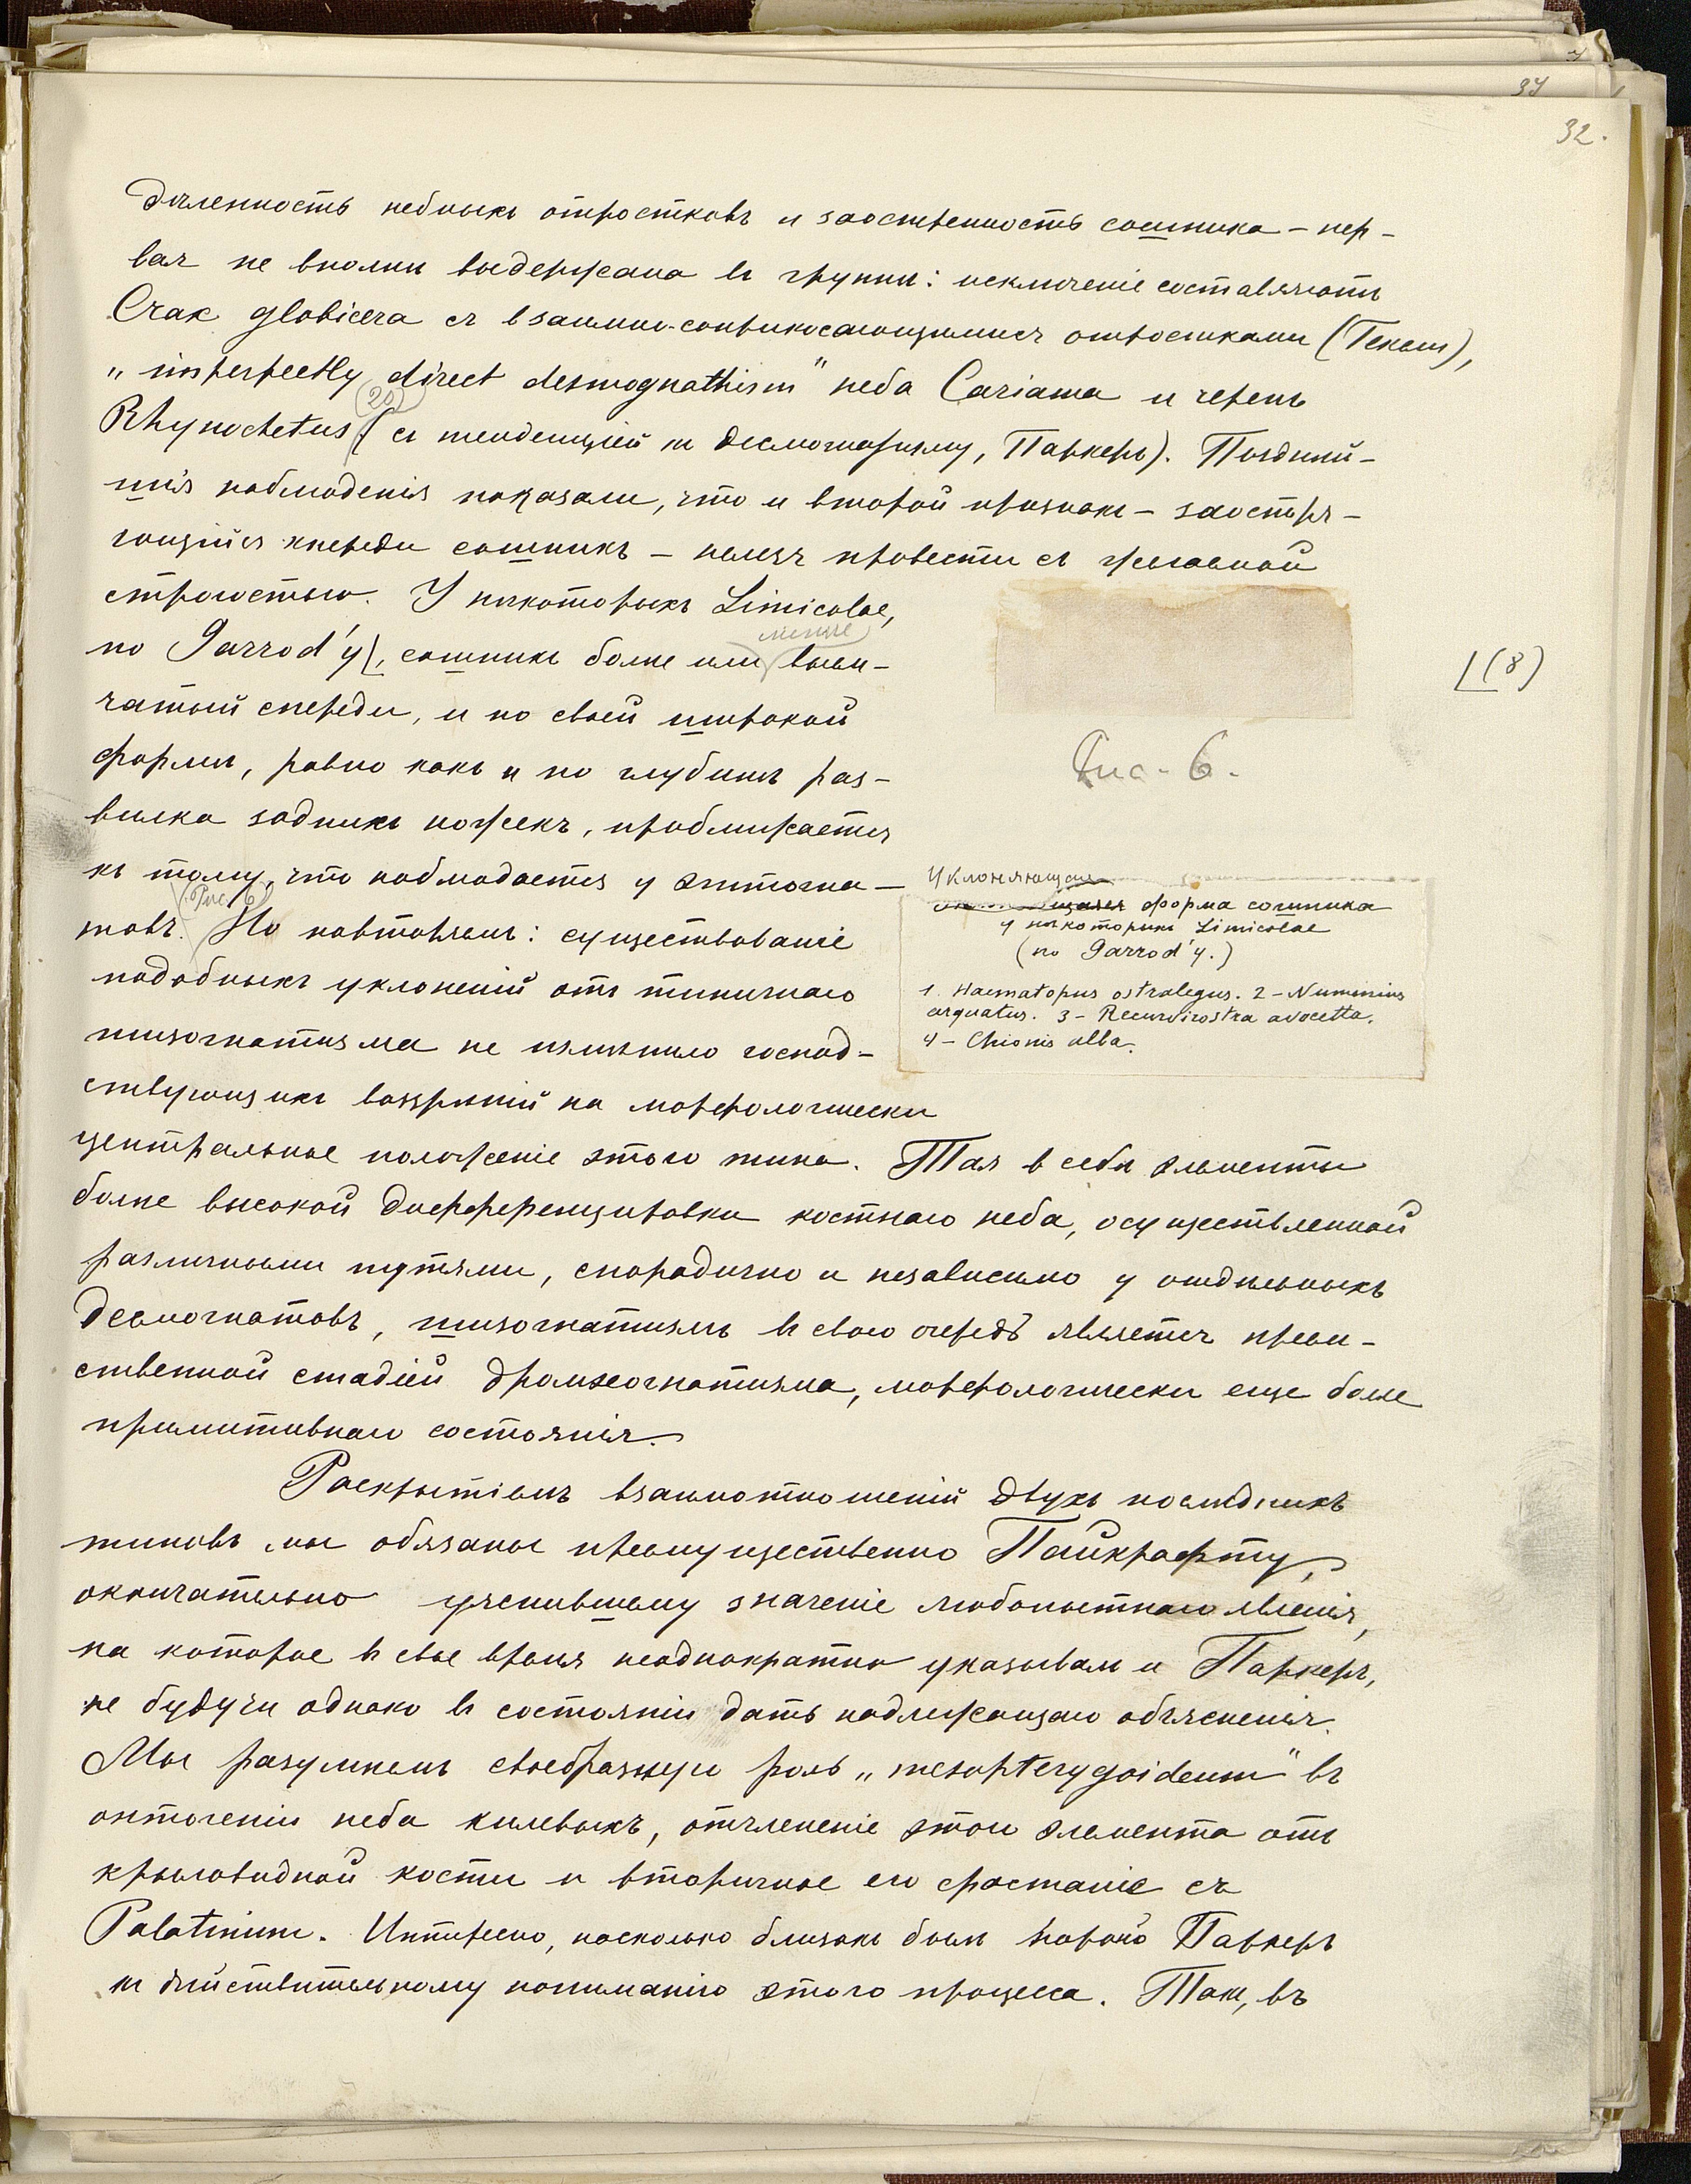 32.
дѣленность небныхъ отростковъ и заостренность сошника – пер-
вая не вполнѣ выдержана въ группѣ: исключеніе составляютъ
Crax globicera съ взаимно-соприкосающимися отростками (Гексли),
„imperfectly direct desmognathism" неба Cariama и черепъ
(20)
Rhynochetus (съ тенденціей къ десмогнатизму, Паркеръ). Позднѣй-
шія наблюденія показали, что и второй признакъ – заостря-
ющійся кпереди сошникъ – нельзя провести съ желаемой
строгостью. У нѣкоторыхъ Limicolae,
менѣе
по Garrod'у, сошникъ болѣе или выем-
⌊(8)
чатый спереди, и по своей широкой
формѣ, равно какъ и по глубинѣ раз-
Рис. 6.
вилка заднихъ ножекъ, приближается
къ тому, что наблюдается у эгитогна-
(Рис. 6)
товъ. Но повторяемъ: существованіе
подобныхъ уклоненій отъ типичнаго
шизогнатизма не измѣнило господ-
ствующихъ воззрѣній на морфологически
Уклоняющаяся
форма сошника
у нѣкоторыхъ Limicolae
(по Garrod'у.)
1. Haematopus ostralegus. 2 – Numenius
arquatus. 3 – Recurvirostra avocetta.
4 – Chionis alba.
центральное положеніе этого типа. Тая въ себѣ элементы
болѣе высокой дифференцировки костнаго неба, осуществленной
различными путями, спорадично и независимо у отдѣльныхъ
десмогнатовъ, шизогнатизмъ въ свою очередь является преем-
ственной стадіей дромеогнатизма, морфологически еще болѣе
примитивнаго состоянія.
Раскрытіемъ взаимоотношеній двухъ послѣднихъ
типовъ мы обязаны преимущественно Пайкрафту,
окончательно уяснившему значеніе любопытнаго явленія,
на которое въ свое время неоднократно указывалъ и Паркеръ,
не будучи однако въ состояніи дать надлежащаго объясненія.
Мы разумѣемъ своеобразную роль „mesopterygoideum" въ
онтогеніи неба килевыхъ, отчлененіе этого элемента отъ
крыловидной кости и вторичное его сростаніе съ
Palatinum. Интересно, насколько близокъ былъ порою Паркеръ
къ дѣйствительному пониманію этого процесса. Такъ, въ